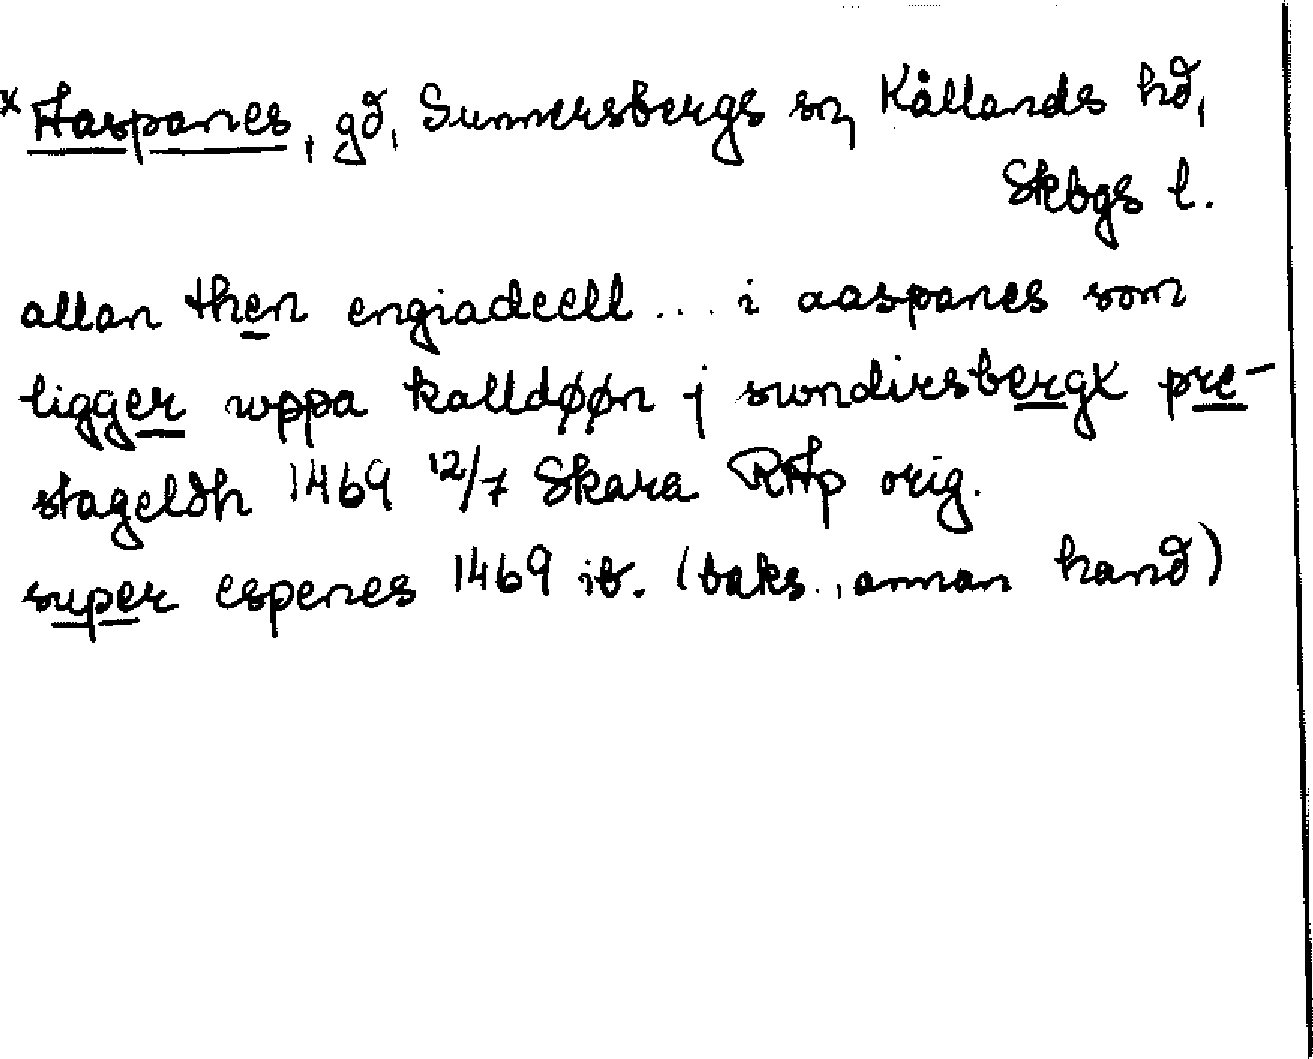 x Aaspanes, gd, Sunnersbergs sn, Kållands hd,
Skbgs l.
allan then engiadeell... i aaspanes som
ligger wppa kalldøøn j swndirsbergx pre-
stageldh 1469 12/7 Skara RAp orig.
super espenes 1469 ib. (baks., annan hand)